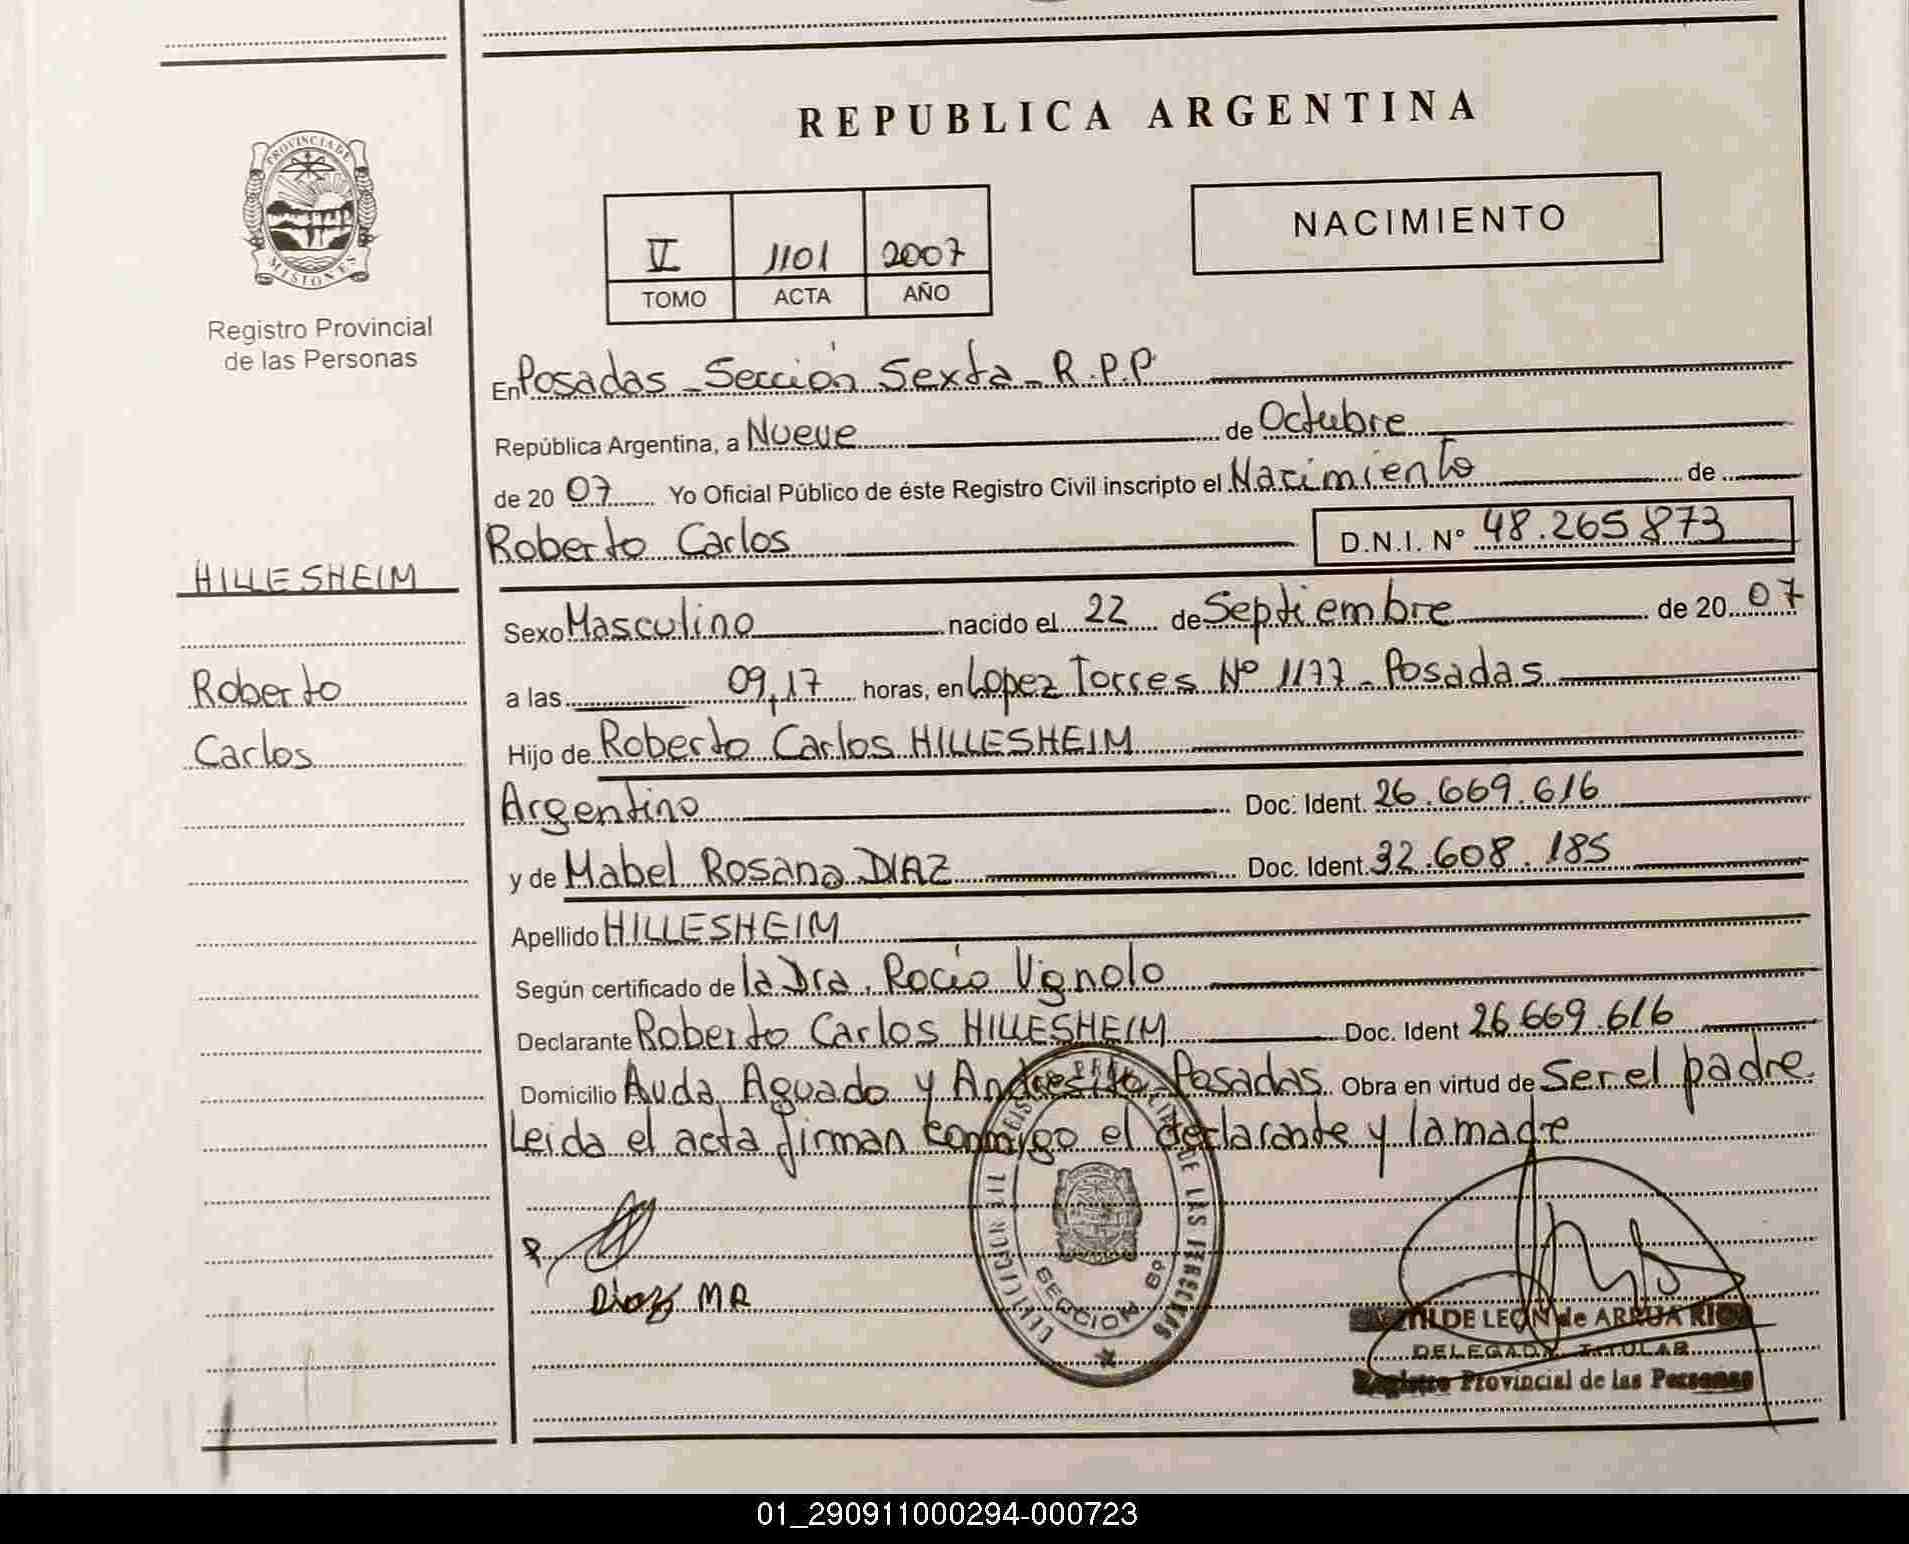 REPUBLICA ARGENTINA
PROVINCIA DE MISIONES
Registro Provincial
de las Personas
V 1101 2007
TOMO ACTA AÑO
NACIMIENTO
En Posadas - Sección Sexta - R.P.P.
República Argentina, a Nueve de Octubre
de 2007 Yo Oficial Público de éste Registro Civil inscripto el Nacimiento de
Roberto Carlos D.N.I. Nº 48.265.873
HILLESHEIM
Roberto
Carlos
Sexo Masculino nacido el 22 de Septiembre de 2007
a las 09,17 horas, en Lopez Torres Nº 1177 - Posadas
Hijo de Roberto Carlos HILLESHEIM
Argentino Doc. Ident. 26.669.616
y de Mabel Rosana DIAZ Doc. Ident. 32.608.185
Apellido HILLESHEIM
Según certificado de la Dra. Rocío Vignolo
Declarante Roberto Carlos HILLESHEIM Doc. Ident 26.669.616
Domicilio Avda. Aguado y Andresito - Posadas Obra en virtud de Ser el padre.
Leida el acta firman conmigo el declarante y la madre
Diaz MR
SECCION 6º
DE LAS PERSONAS
TILDE LEON de ARRUA RIOS
DELEGADA TITULAR
Registro Provincial de las Personas
01_290911000294-000723